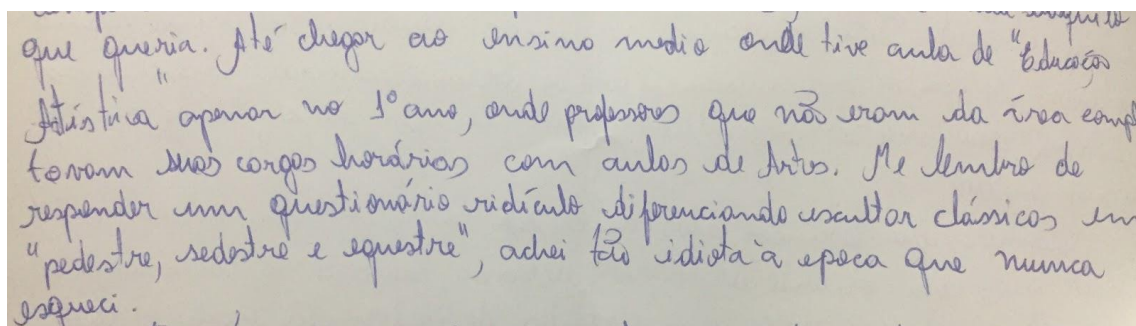 que queria. Até chegar ao ensino medio onde tive aula de "Educação
Artística" apenas no 1º ano, onde professores que não eram da área comple
tavam suas cargas horárias com aulas de Artes. Me lembro de
responder um questionário ridículo diferenciando escultor clássicos em
"pedestre, sedestre e equestre", achei tão idiota à epoca que nunca
esqueci.